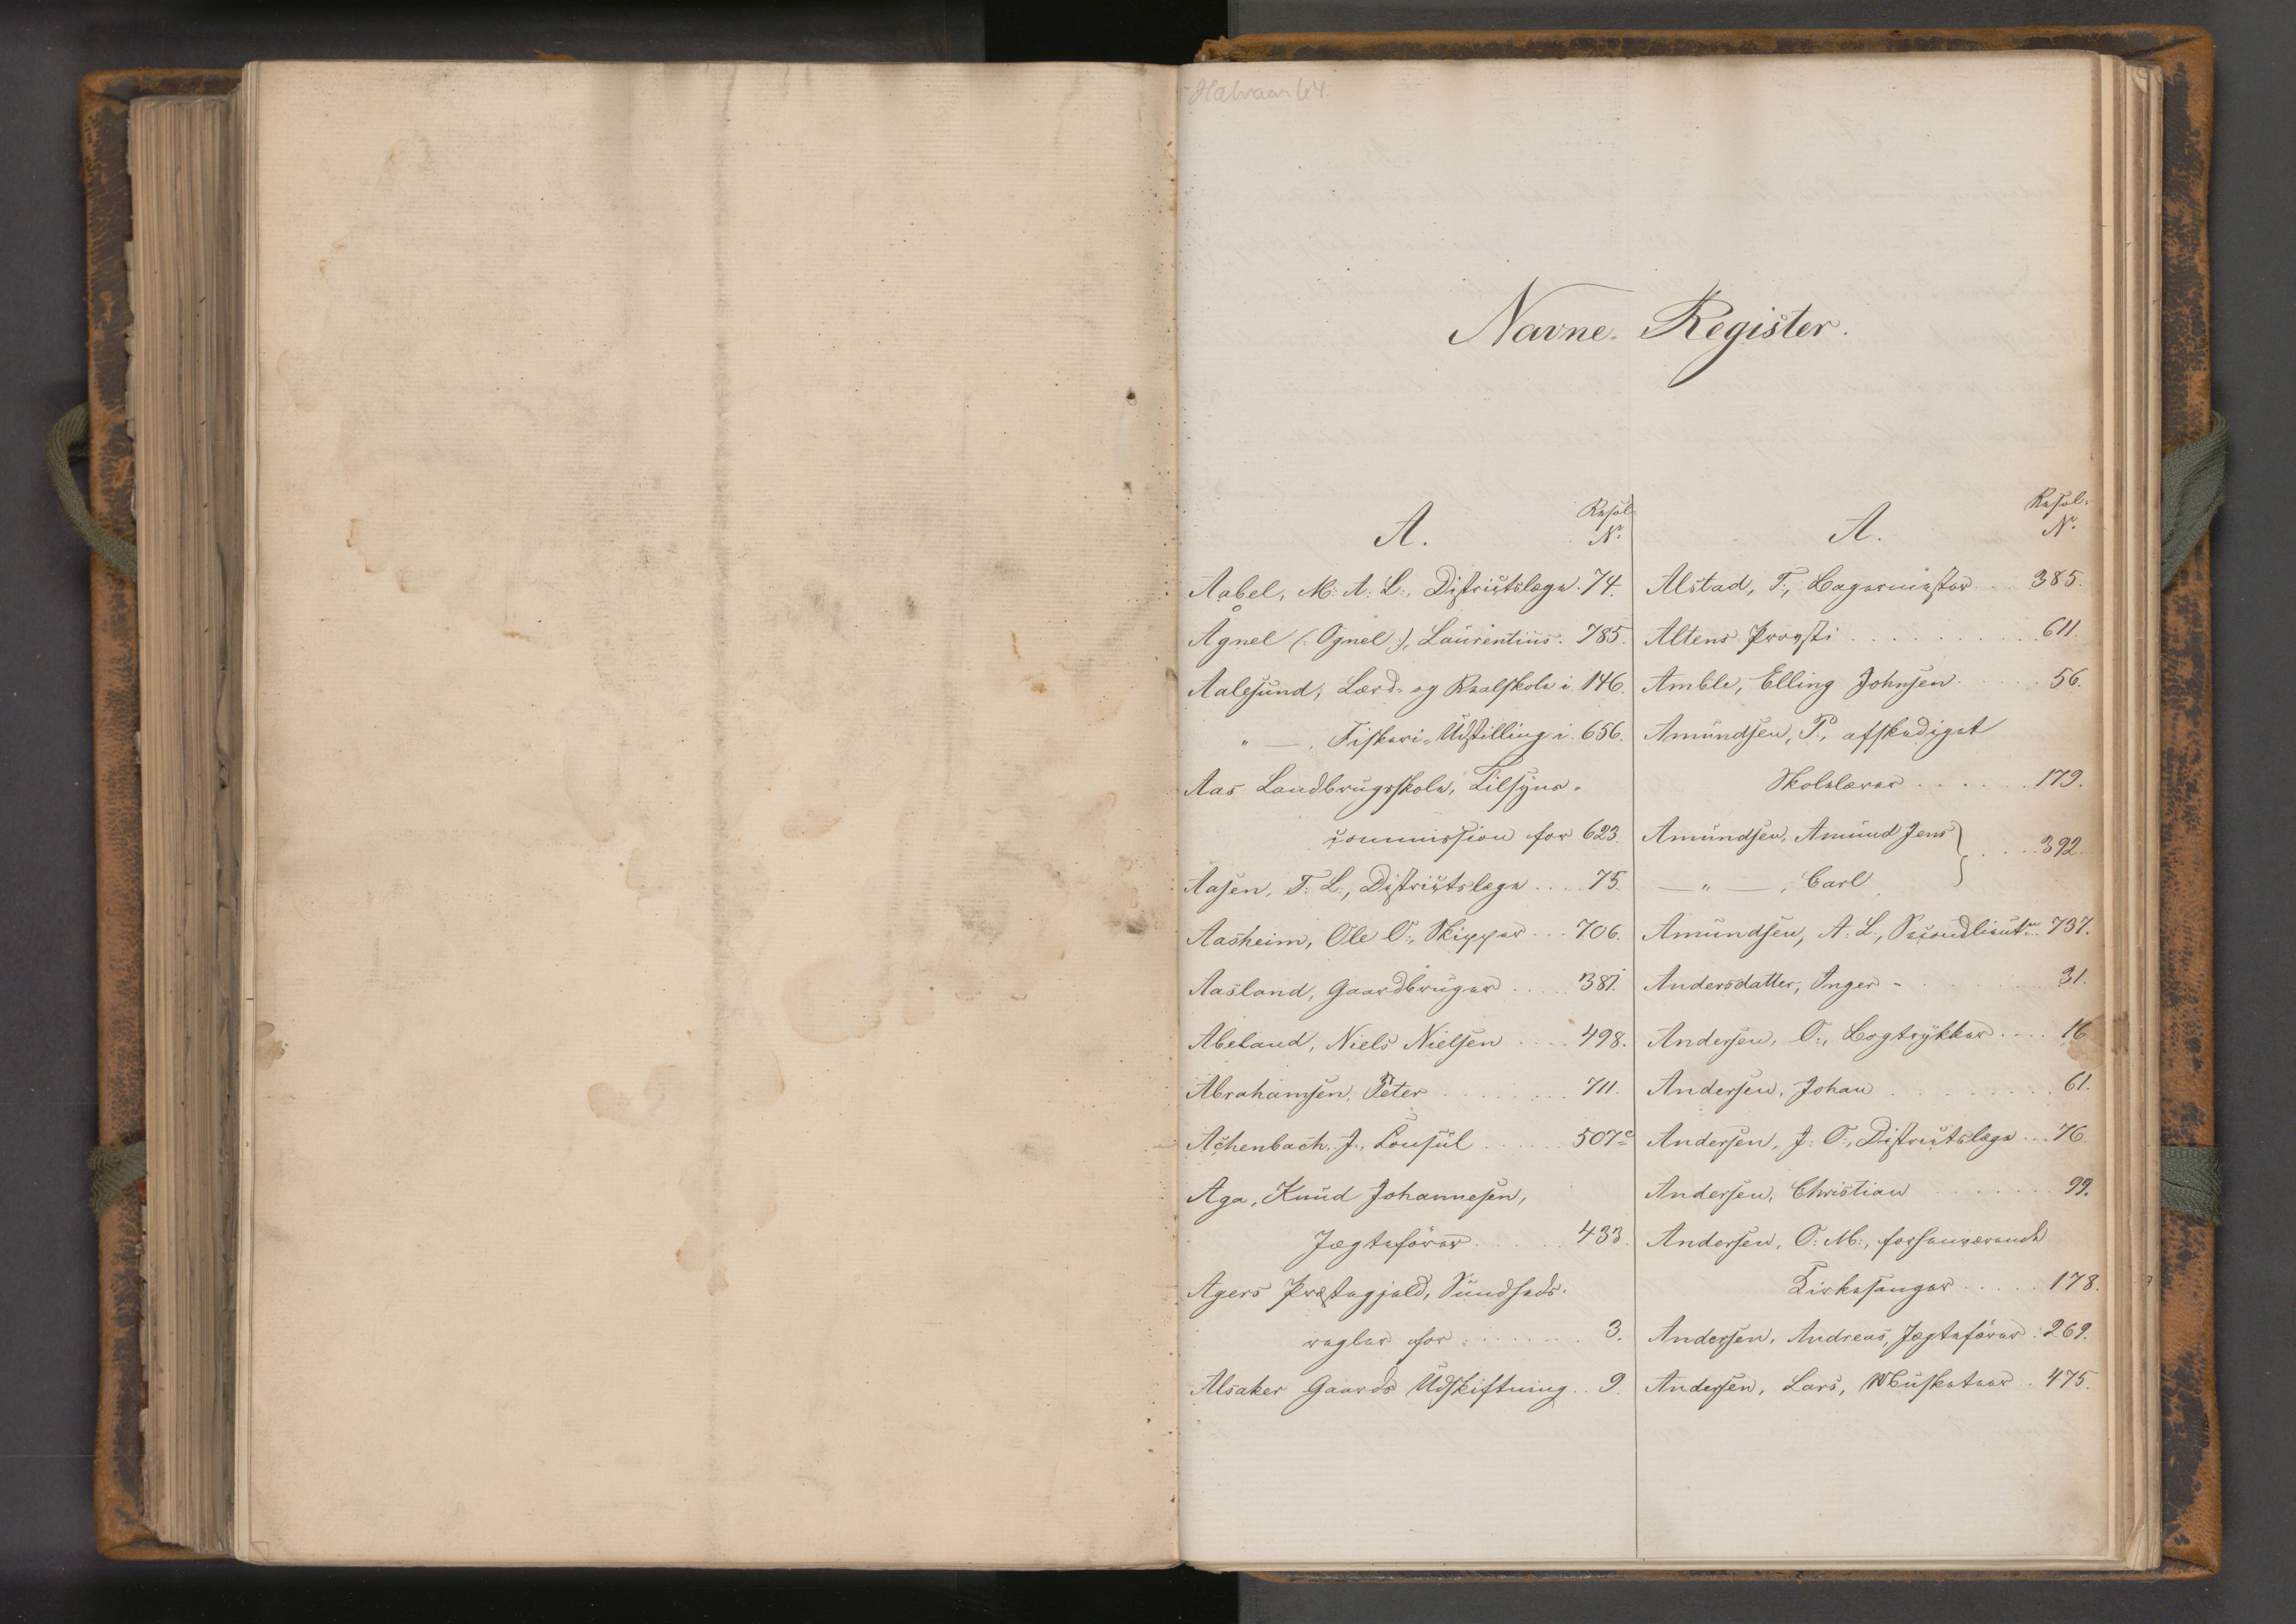 Halvaar 64.
Navne-Register.
A.
Resol-
No.
Aabel, M. A. L., Districtslæge. 74.
Agnel (: Ognel :), Laurentius. 785.
Aalesund, Lærd- og Realskole i 146.
" — , Fiskeri-Udstilling i. 656.
Aas Landbrugsskole, Tilsyns-
commission for 623.
Aasen, T. L., Districtslæge .... 75.
Aasheim, Ole O., Skipper ... 706.
Aasland, Gaardbruger .... 381.
Abeland, Niels Nielsen .... 498.
Abrahamsen, Peter ........ 711.
Achenbach, J., Consul ..... 507c
Aga, Knud Johannesen,
Jægtefører ..... 433.
Agers Præstegjeld, Sundheds-
regler for ........ 3.
Alsaker Gaards Udskiftning .. 9.
A.
Resol-
No.
Alstad, T., Lagermester ... 385.
Altens Provsti .......... 611.
Amble, Elling Johnsen ..... 56.
Amundsen, P., afskediget
Skolelærer ...... 179.
Amundsen, Amund Jens
— " — , Carl } .... 392.
Amundsen, A. L., Secondlieutn. 737.
Andersdatter, Inger - ...... 31.
Andersen, O., Bogtrykker .... 16
Andersen, Johan ......... 61.
Andersen, J. O., Districtslæge ... 76.
Andersen, Christian ....... 99.
Andersen, O. M., forhenværende
Kirkesanger ..... 178.
Andersen, Andreas, Jægtefører . 269.
Andersen, Lars, Musketeer . 475.